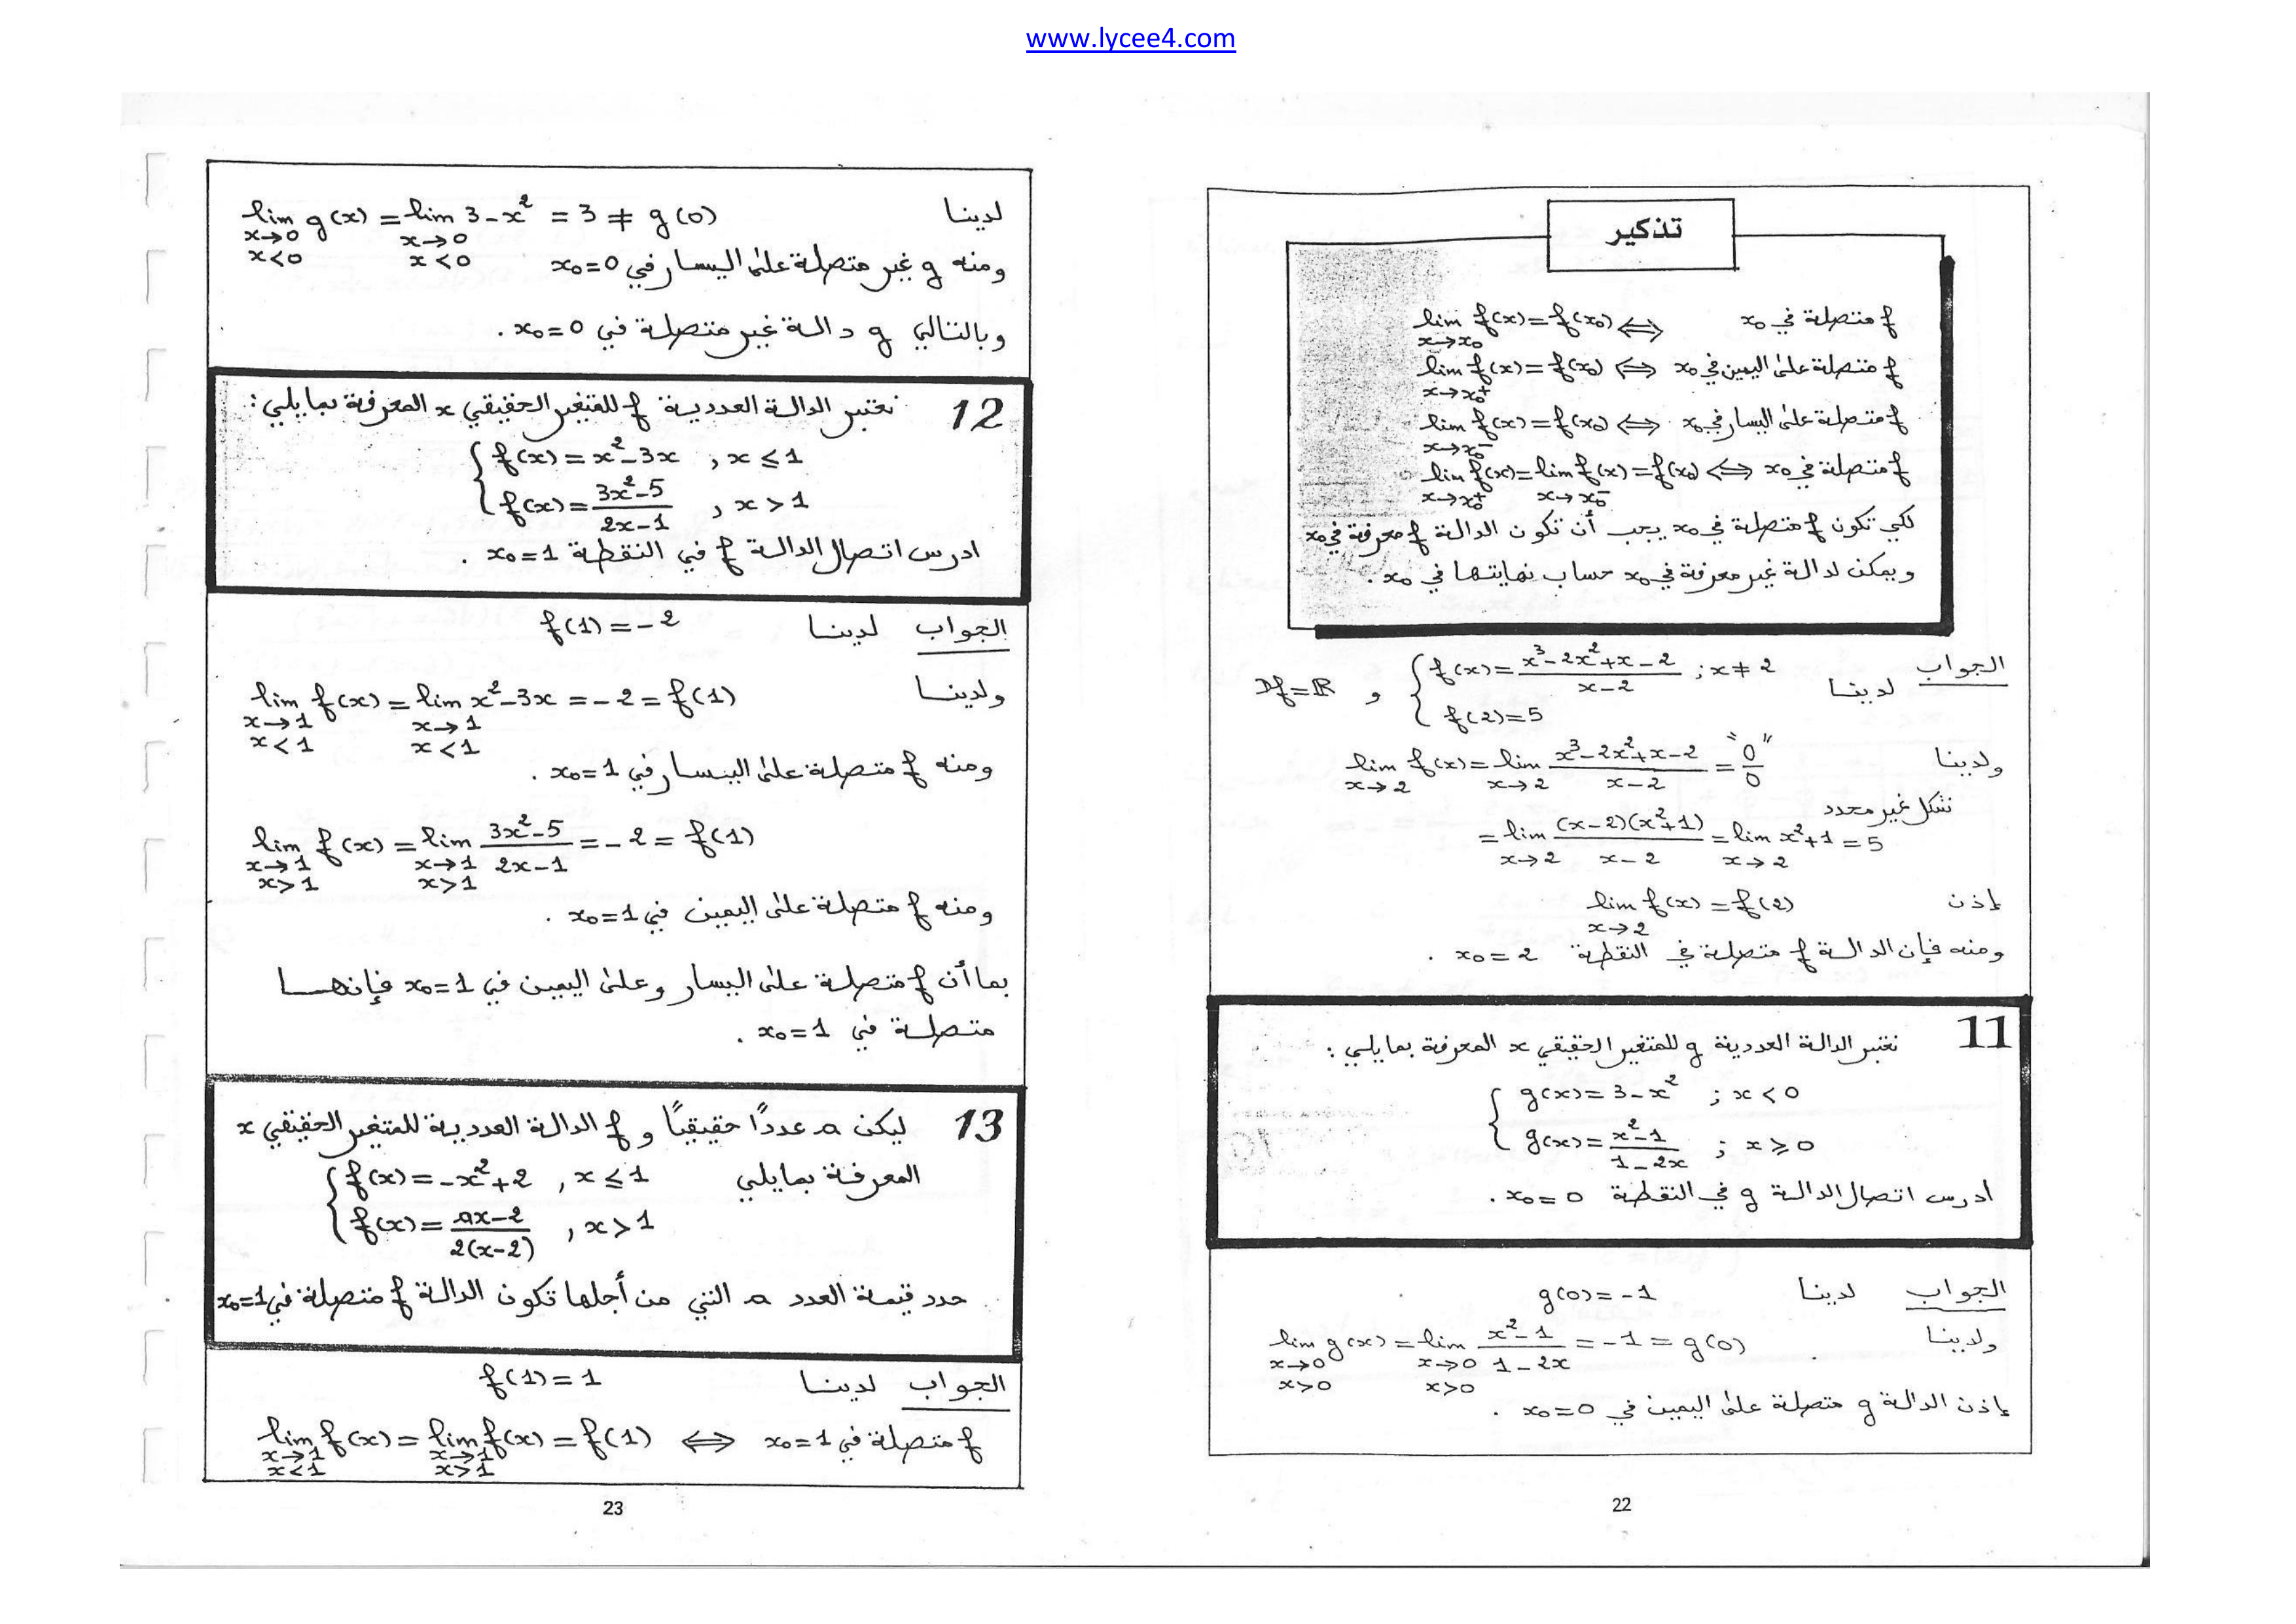 www.lycee4.com
تذكير
f متصلة في x₀ ⟺ lim f(x) = f(x₀)
x→x₀
f متصلة على اليمين في x₀ ⟺ lim f(x) = f(x₀)
x→x₀⁺
f متصلة على اليسار في x₀ ⟺ lim f(x) = f(x₀)
x→x₀⁻
f متصلة في x₀ ⟺ lim f(x) = lim f(x) = f(x₀)
x→x₀⁺ x→x₀⁻
لكي تكون f متصلة في x₀ يجب أن تكون الدالة f معرفة في x₀
ويمكن لدالة غير معرفة في x₀ حساب نهايتها في x₀.
الجواب لدينا { f(x) = (x³-2x²+x-2)/(x-2) ; x ≠ 2 و Df = ℝ
f(2) = 5
ولدينا lim f(x) = lim (x³-2x²+x-2)/(x-2) = "0/0"
x→2 x→2
شكل غير محدد
= lim (x-2)(x²+1)/(x-2) = lim x²+1 = 5
x→2 x→2
إذن lim f(x) = f(2)
x→2
ومنه فإن الدالة f متصلة في النقطة x₀ = 2 .
11 نعتبر الدالة العددية g للمتغير الحقيقي x المعرفة بمايلي :
{ g(x) = 3-x² ; x < 0
g(x) = (x²-1)/(1-2x) ; x ⩾ 0
ادرس اتصال الدالة g في النقطة x₀ = 0 .
الجواب لدينا g(0) = -1
ولدينا lim g(x) = lim (x²-1)/(1-2x) = -1 = g(0)
x→0 x→0
x>0 x>0
إذن الدالة g متصلة على اليمين في x₀ = 0 .
22
لدينا lim g(x) = lim 3-x² = 3 ≠ g(0)
x→0 x→0
x<0 x<0
ومنه g غير متصلة على اليسار في x₀ = 0
وبالتالي g دالة غير متصلة في x₀ = 0 .
12 نعتبر الدالة العددية f للمتغير الحقيقي x المعرفة بمايلي :
{ f(x) = x²-3x , x ⩽ 1
f(x) = (3x²-5)/(2x-1) , x > 1
ادرس اتصال الدالة f في النقطة x₀ = 1 .
الجواب لدينا f(1) = -2
ولدينا lim f(x) = lim x²-3x = -2 = f(1)
x→1 x→1
x<1 x<1
ومنه f متصلة على اليسار في x₀ = 1 .
lim f(x) = lim (3x²-5)/(2x-1) = -2 = f(1)
x→1 x→1
x>1 x>1
ومنه f متصلة على اليمين في x₀ = 1 .
بما أن f متصلة على اليسار وعلى اليمين في x₀ = 1 فإنها
متصلة في x₀ = 1 .
13 ليكن a عددًا حقيقيًا و f الدالة العددية للمتغير الحقيقي x
المعرفة بمايلي { f(x) = -x²+2 , x ⩽ 1
f(x) = (ax-2)/(2(x-2)) , x > 1
حدد قيمة العدد a التي من أجلها تكون الدالة f متصلة في x₀ = 1
الجواب لدينا f(1) = 1
f متصلة في x₀ = 1 ⟺ lim f(x) = lim f(x) = f(1)
x→1 x→1
x<1 x>1
23